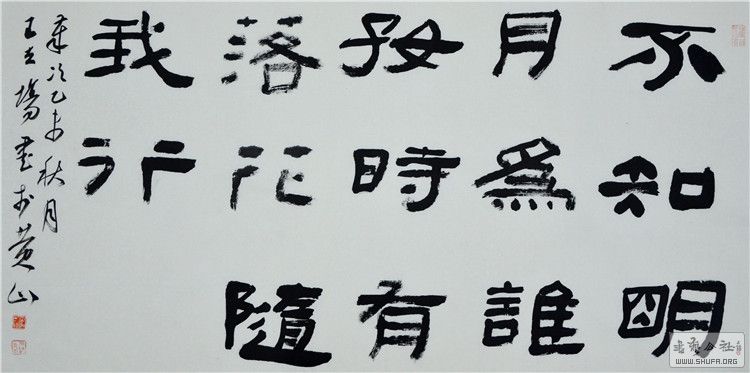 不知明
月為誰
好時有
落花隨
我行
歲次乙未秋月
王書於黃山
书法公社
WWW.SHUFA.ORG